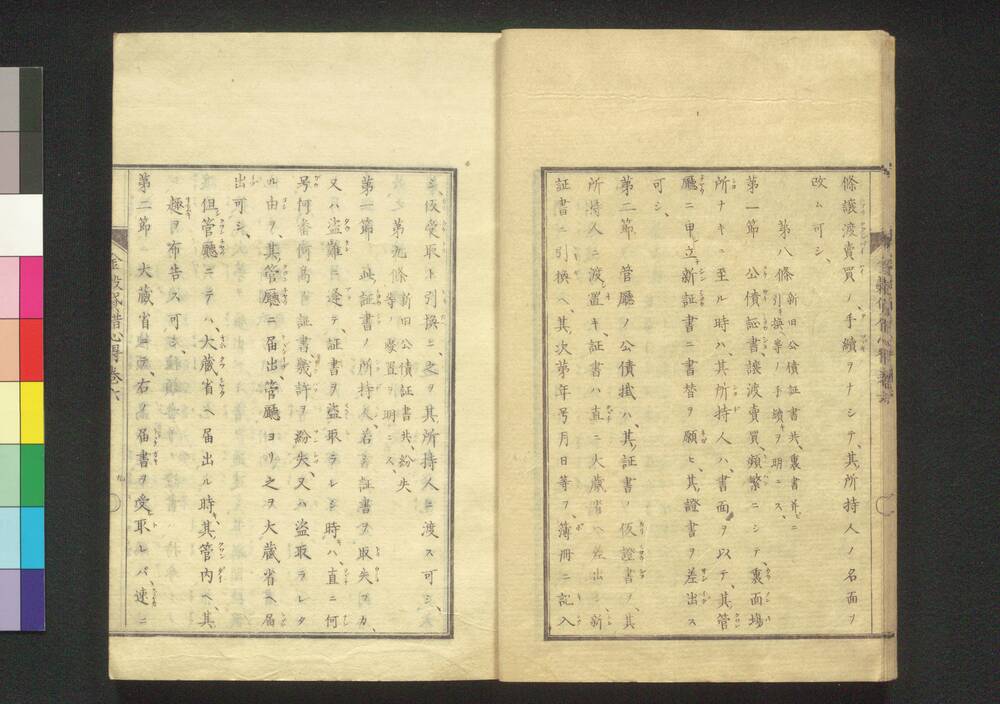 條讓渡賣買ノ手續ヲナシテ、其所持人ノ名面ヲ
改ム可シ、
第八條 新旧公債証書共、裏書幷ニ
引換等ノ手續ヲ明ニス、
第一節 公債証書讓渡賣買、頻繁ニシテ、裏面塲
所ナキニ至ル時ハ、其所持人ハ、書面ヲ以テ、其管
廳ニ申立、新証書ニ書替ヲ願ヒ、其證書ヲ差出ス
可シ、
第二節 管廳ノ公債掛ハ、其証書ノ仮證書ヲ、其
所持人ニ渡置キ、証書ハ直ニ大蔵省ヘ差出シ、新
証書ニ引換ヘ、其次第年号月日等ヲ、薄冊ニ記入
シ、仮受取ト引換ニ、之ヲ其所持人ニ渡ス可シ、
第九條 新旧公債証書共、紛失
等ノ處置ヲ明ニス、
第一節 此証書ノ所持人、若シ証書ヲ取失フカ、
又ハ盗難ニ逢テ、証書ヲ盗取ラレシ時ハ、直ニ何
号何番何高ノ証書幾許ヲ紛失、又ハ盗取ラレタ
ル由ヲ、其管廳ニ届出、管廳ヨリ之ヲ大蔵省ヘ届
出可シ、
但管廳ニテハ、大蔵省ヘ届出ル時、其管内ヘ、其
趣ヲ布告ス可シ、
第二節 大蔵省ニテ、右ノ届書ヲ受取レバ、速ニ